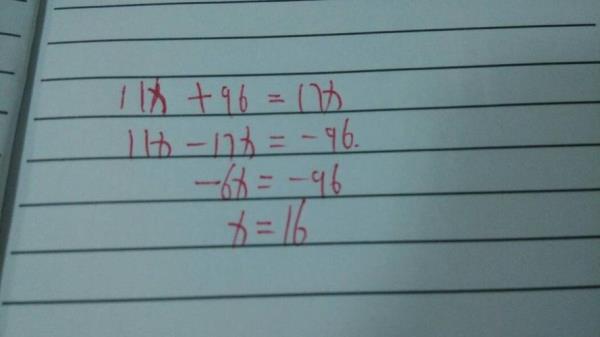 11x + 96 = 17x
11x - 17x = -96.
-6x = -96
x = 16